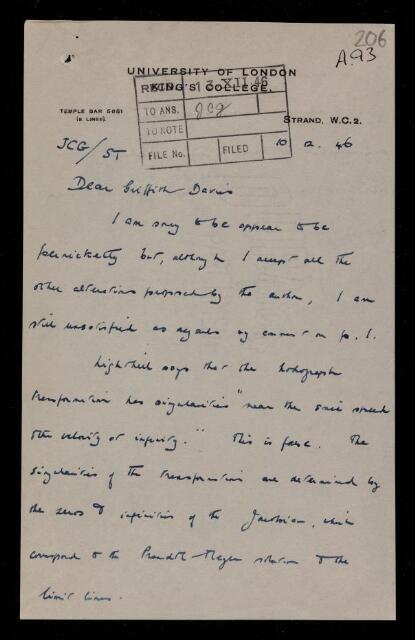 206
A.93
UNIVERSITY OF LONDON
KING'S COLLEGE.
REC'D 13 XII 46
TEMPLE BAR 5651
(2 LINES).
TO ANS. JCG
STRAND, W.C.2.
TO NOTE
FILE No. FILED
10 12. 46
JCG/ST
Dear Griffith Davies
I am sorry to be appear to be
pernicketty but, although I accept all the
other alterations proposed by the author, I am
still unsatisfied as regards my comment on p. 1.
Lighthill says that the hodograph
transformation has singularities "near the sonic speed
the velocity at infinity." This is false. The
singularities of the transformation are determined by
the zeros & infinities of the Jacobian, which
correspond to the Prandtl-Meyer solution & the
limit lines.